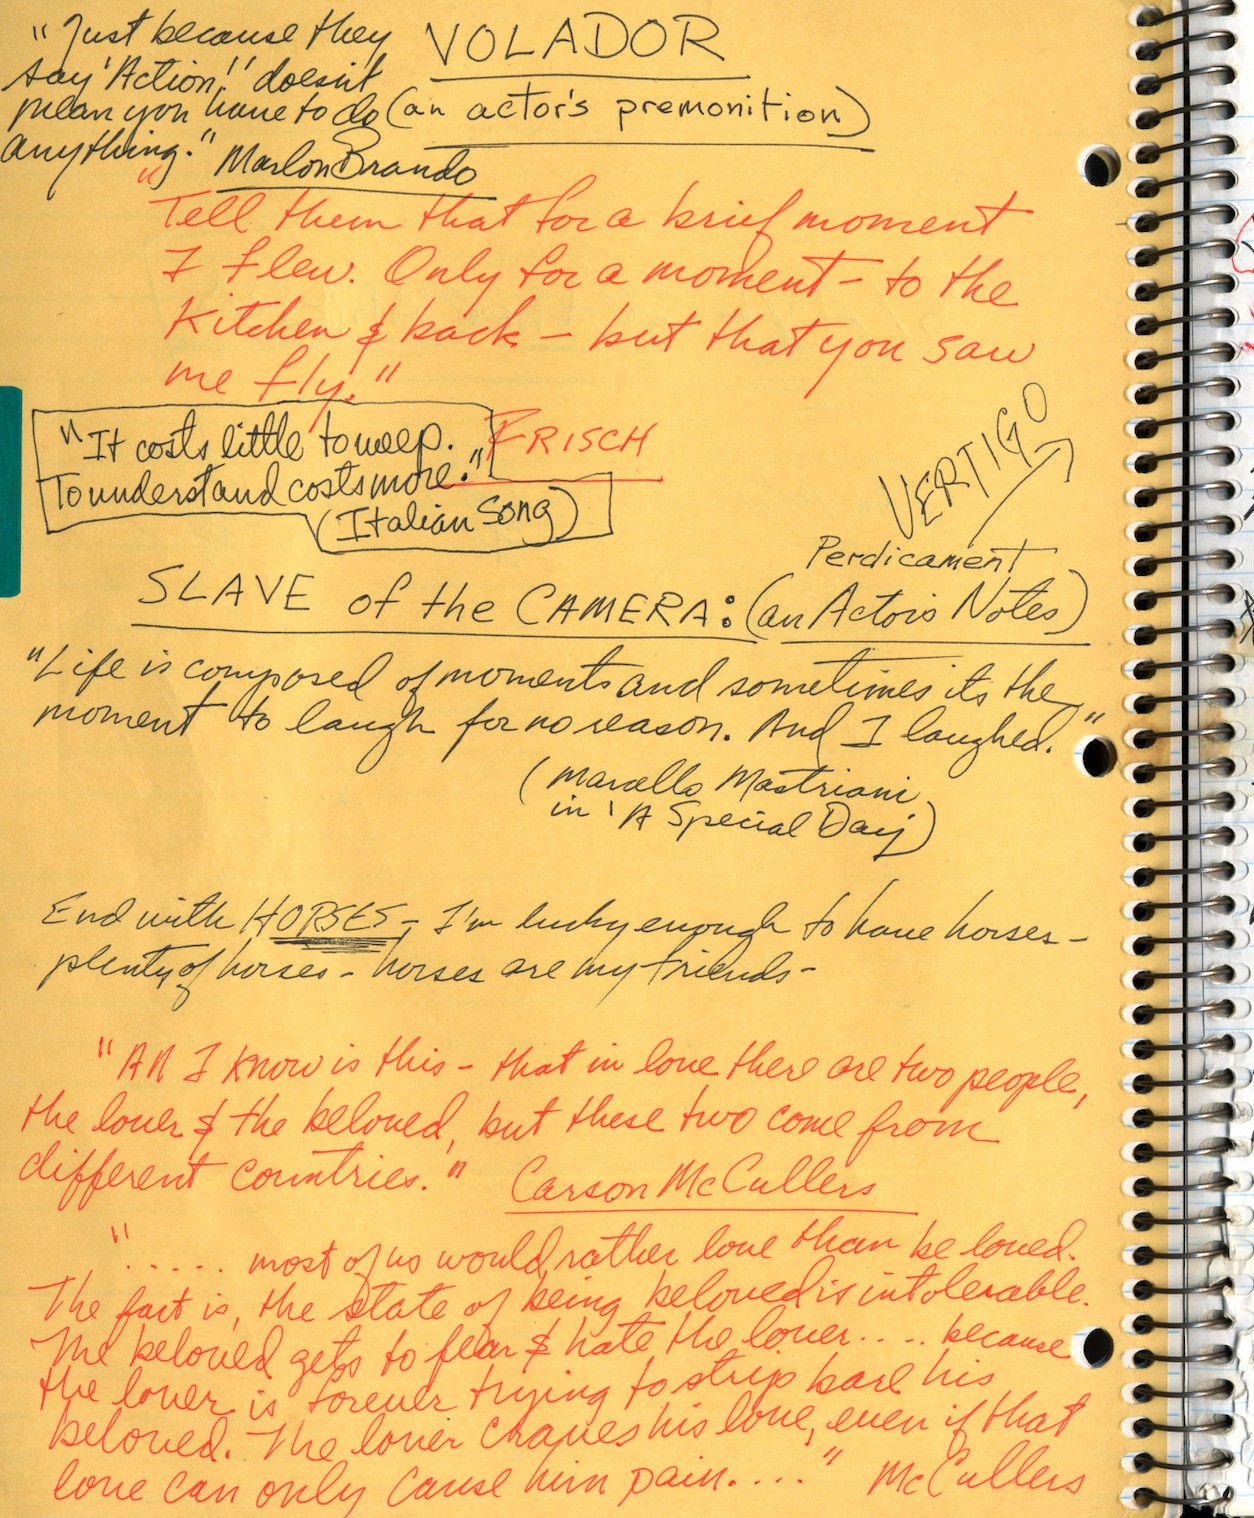 "Just because they
say 'Action!' doesn't
mean you have to do
anything." Marlon Brando
VOLADOR
(an actor's premonition)
"Tell them that for a brief moment
I flew. Only for a moment – to the
Kitchen & back – but that you saw
me fly."
FRISCH
"It costs little to weep.
To understand costs more."
(Italian Song)
VERTIGO
Perdicament
SLAVE of the CAMERA: (an Actor's Notes)
"Life is composed of moments and sometimes its the
moment to laugh for no reason. And I laughed."
(Marcello Mastriani
in 'A Special Day')
End with HORSES – I'm lucky enough to have horses –
plenty of horses – horses are my friends –
"All I know is this – that in love there are two people,
the lover & the beloved, but these two come from
different countries." Carson McCullers
"..... most of us would rather love than be loved.
The fact is, the state of being beloved is intolerable.
The beloved gets to fear & hate the lover.... because
the lover is forever trying to strip bare his
beloved. The lover craves his love, even if that
love can only cause him pain...." McCullers